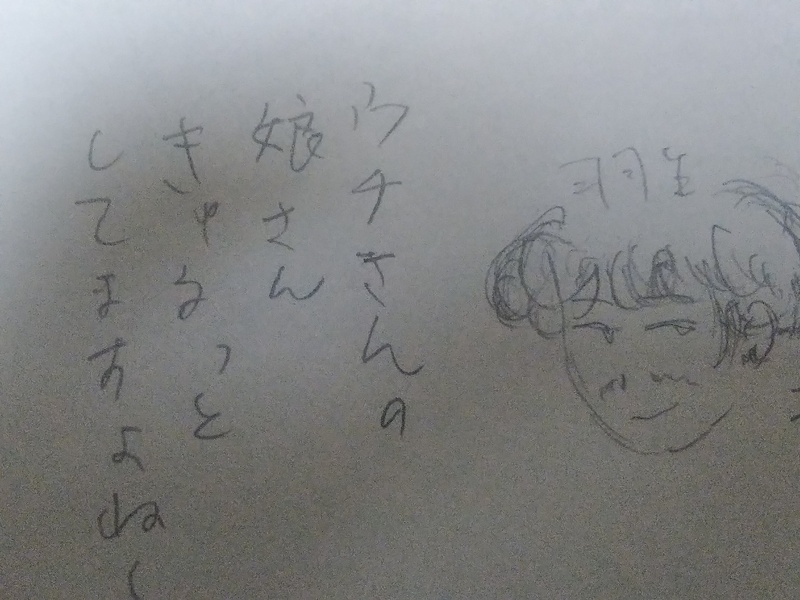 ウチさんの
娘さん
きゅるっと
してますよね〜